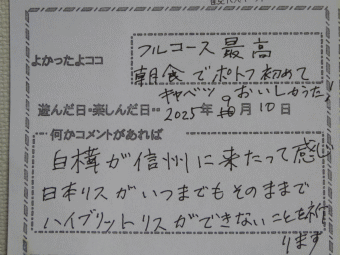 よかったよココ
フルコース 最高
朝食でポトフ初めて
キャベツ おいしかった!
遊んだ日・楽しんだ日‥ 2025年 9月10日
何かコメントがあれば
白樺が信州に来たって感じ
日本リスがいつまでもそのままで
ハイブリットリスができないことを祈
ります